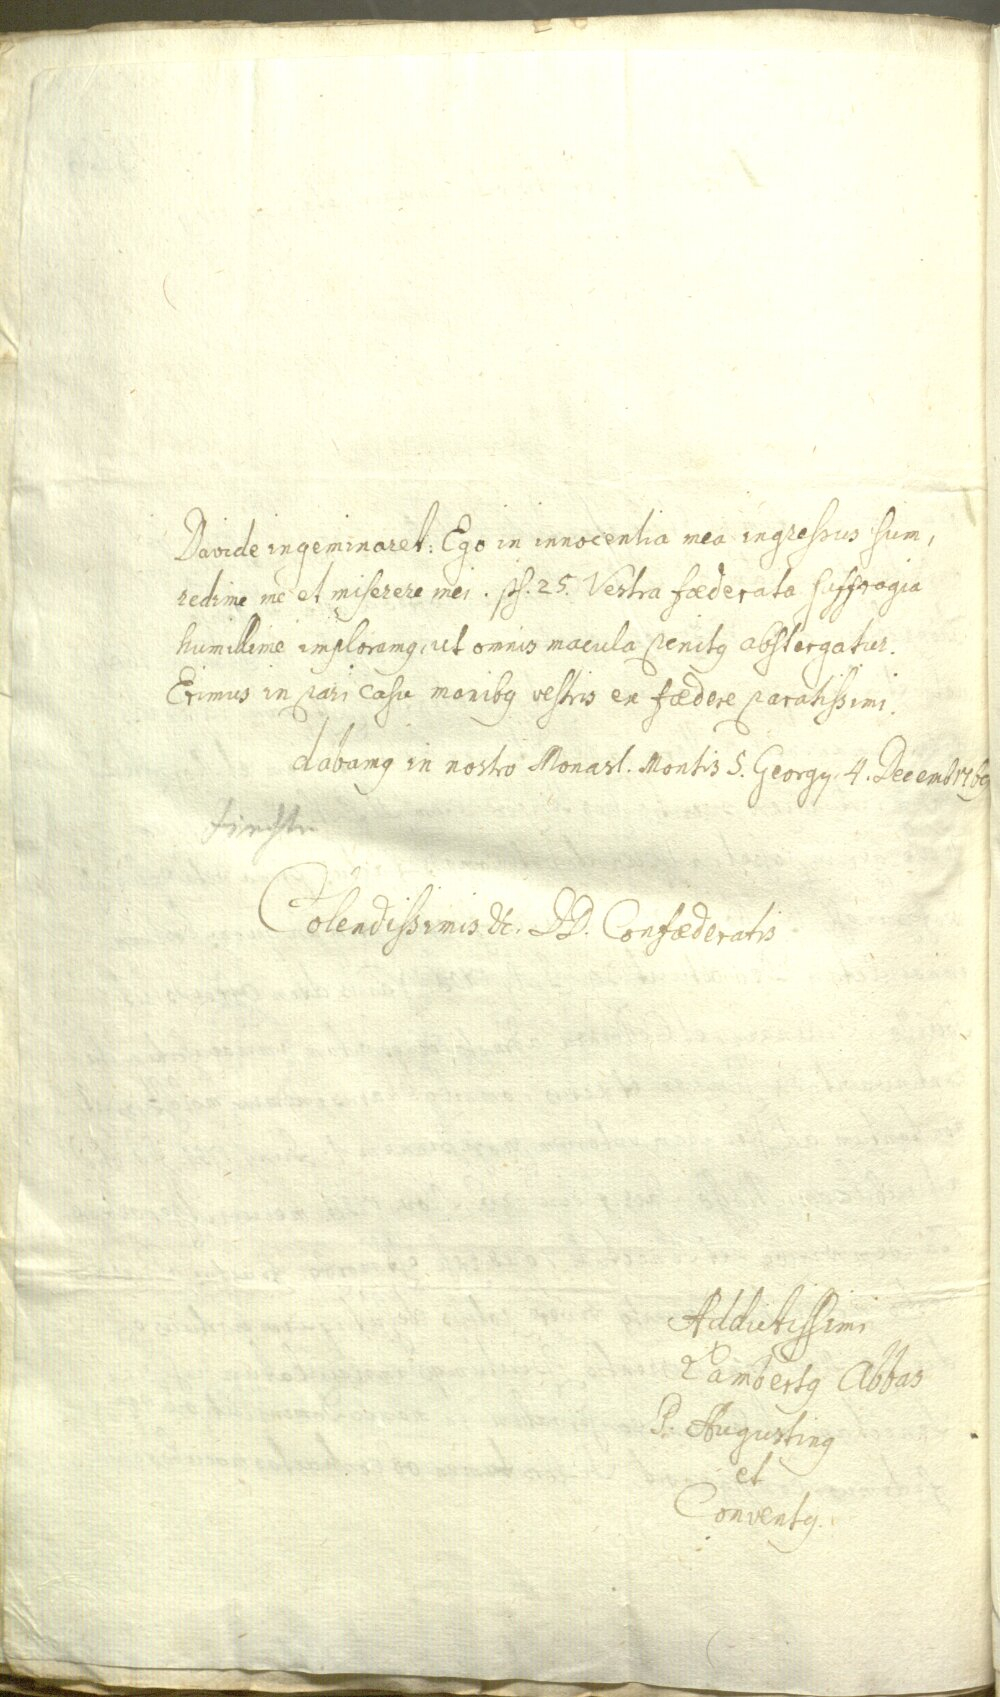 Davide ingeminaret: Ego in innocentia mea ingressus sum,
redime me et miserere mei. ps. 25. Vestra fœderata suffragia
humillime imploramq, ut omnis macula penitq abstergatur.
Erimus in pari casu manibq vestris en fœdere paratissimi.
dabamq in nostro Monast. Montis S. Georgy 4. Decemb
Colendissimis &c. DD. Confœderatis
Addictissimi
Lambertq Abbas
P. Augustinq
et
Conventq.